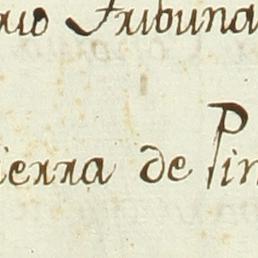 uo Tribuna
ierra de Pin